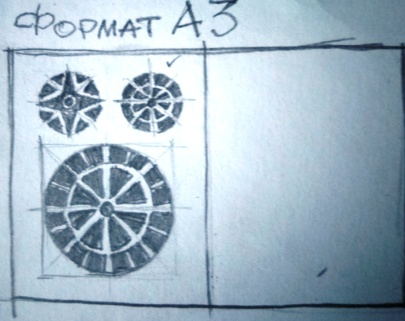 ФОРМАТ А3